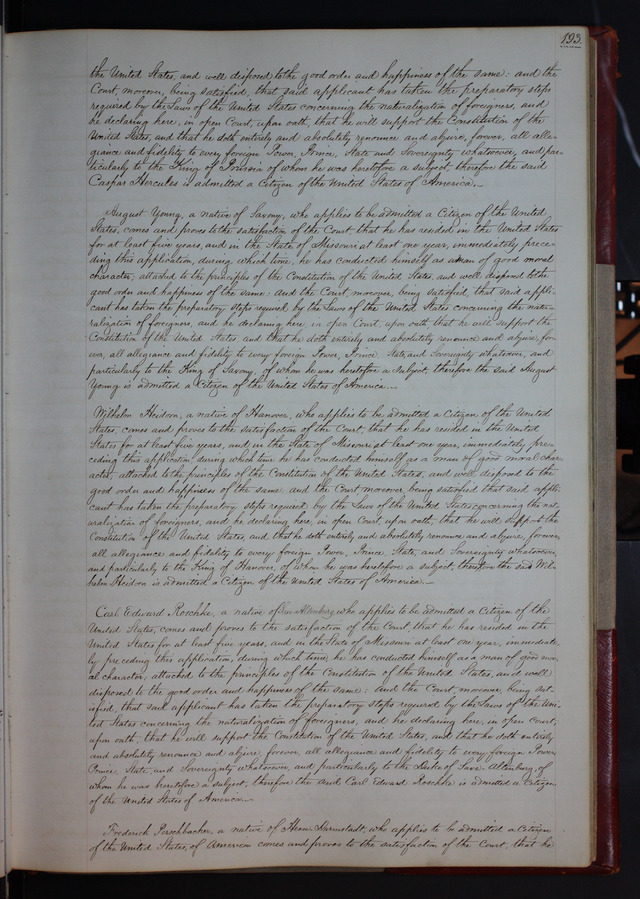 193.
the United States, and well disposed to the good order and happiness of the same: and the
Court, moreover, being satisfied, that said applicant has taken the preparatory steps
required by the Laws of the United States concerning the naturalization of foreigners, and
he declaring here, in open Court, upon oath, that he will support the Constitution of the
United States, and that he doth entirely and absolutely renounce and abjure, forever, all alle-
giance and fidelity to every foreign Power, Prince, State and Sovereignty whatsoever, and par-
ticularly to the King of Prussia of whom he was heretofore a subject; therefore the said
Caspar Hercules is admitted a Citizen of the United States of America.
August Young, a native of Saxony, who applies to be admitted a Citizen of the United
States, comes and proves to the satisfaction of the Court that he has resided in the United States
for at least five years, and in the State of Missouri at least one year, immediately prece-
ding this application, during which time, he has conducted himself as a man of good moral
character; attached to the principles of the Constitution of the United States and well disposed to the
good order and happiness of the same: and the Court, moreover, being satisfied, that said appli-
cant has taken the preparatory steps required by the Laws of the United States concerning the natu-
ralization of foreigners, and he declaring here in open Court, upon oath that he will support the
Constitution of the United States, and that he doth entirely and absolutely renounce and abjure, for-
ever, all allegiance and fidelity to every foreign Power, Prince, State, and Sovereignty whatever, and
particularly to the King of Saxony, of whom he was heretofore a subject, therefore the said August
Young is admitted a Citizen of the United States of America.
Wilhelm Heidorn, a native of Hanover, who applies to be admitted a Citizen of the United
States, comes and proves to the satisfaction of the Court, that he has resided in the United
States for at least five years, and in the State of Missouri at least one year, immediately pre-
ceding this application, during which time he has conducted himself as a man of good moral char-
acter, attached to the principles of the Constitution of the United States, and well disposed to the
good order and happiness of the same: and the Court moreover being satisfied that said appli-
cant has taken the preparatory steps required by the Laws of the United States concerning the nat-
uralization of foreigners, and he declaring here, in open Court, upon oath, that he will support the
Constitution of the United States, and that he doth entirely and absolutely renounce and abjure, forever,
all allegiance and fidelity to every foreign Power, Prince, State, and Sovereignty whatsoever,
and particularly to the King of Hanover, of whom he was heretofore a subject, therefore the said Wil-
helm Heidorn is admitted a Citizen of the United States of America.
Carl Edward Roschke, a native of Altenburg who applies to be admitted a Citizen of the
United States, comes and proves to the satisfaction of the Court that he has resided in the
United States for at least five years, and in the State of Missouri at least one year, immediate-
ly preceding this application, during which time, he has conducted himself as a man of good mor-
al character, attached to the principles of the Constitution of the United States, and well
disposed to the good order and happiness of the same: And the Court, moreover, being sat-
isfied, that said applicant has taken the preparatory steps required by the Laws of the Uni-
ted States concerning the naturalization of foreigners, and he declaring here, in open Court,
upon oath, that he will support the Constitution of the United States, and that he doth entirely
and absolutely renounce and abjure, forever, all allegiance and fidelity to every foreign Power,
Prince, State, and Sovereignty whatsoever, and particularly to the Duke of Saxe Altenburg, of
whom he was heretofore a subject, therefore the said Carl Edward Roschke is admitted a Citizen
of the United States of America.
Frederick Perschbacher, a native of Hesse Darmstadt, who applies to be admitted a Citizen
of the United States, of America comes and proves to the satisfaction of the Court, that he